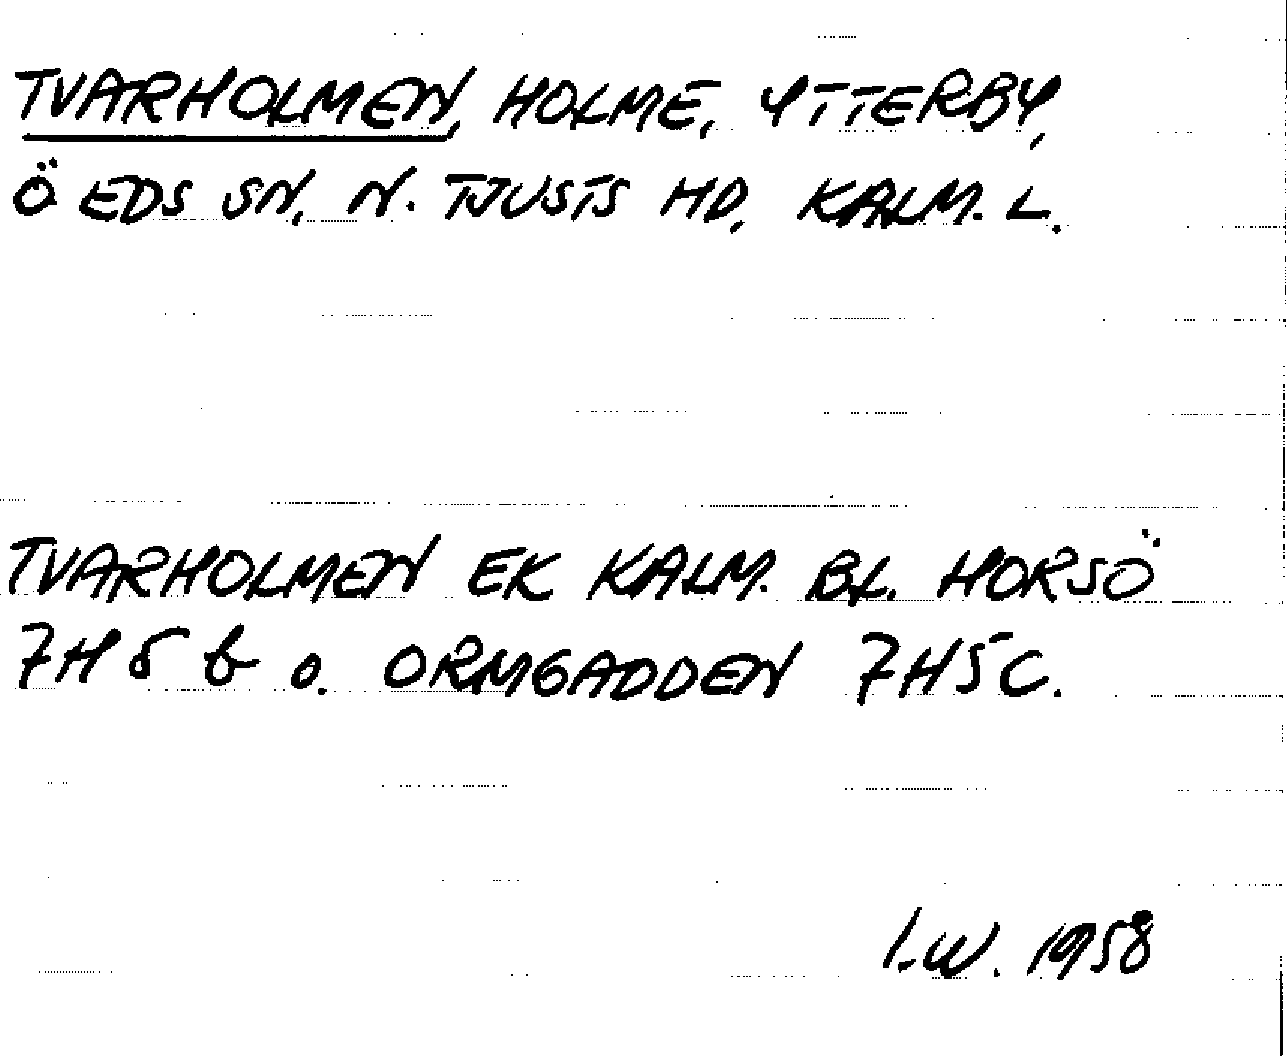 TVARHOLMEN, HOLME, YTTERBY,
Ö EDS SN, N. TJUSTS HD, KALM. L.
TVARHOLMEN EK KALM. BL. HORSÖ
7H5 b o. ORMGADDEN 7H5C.
I.W. 1958